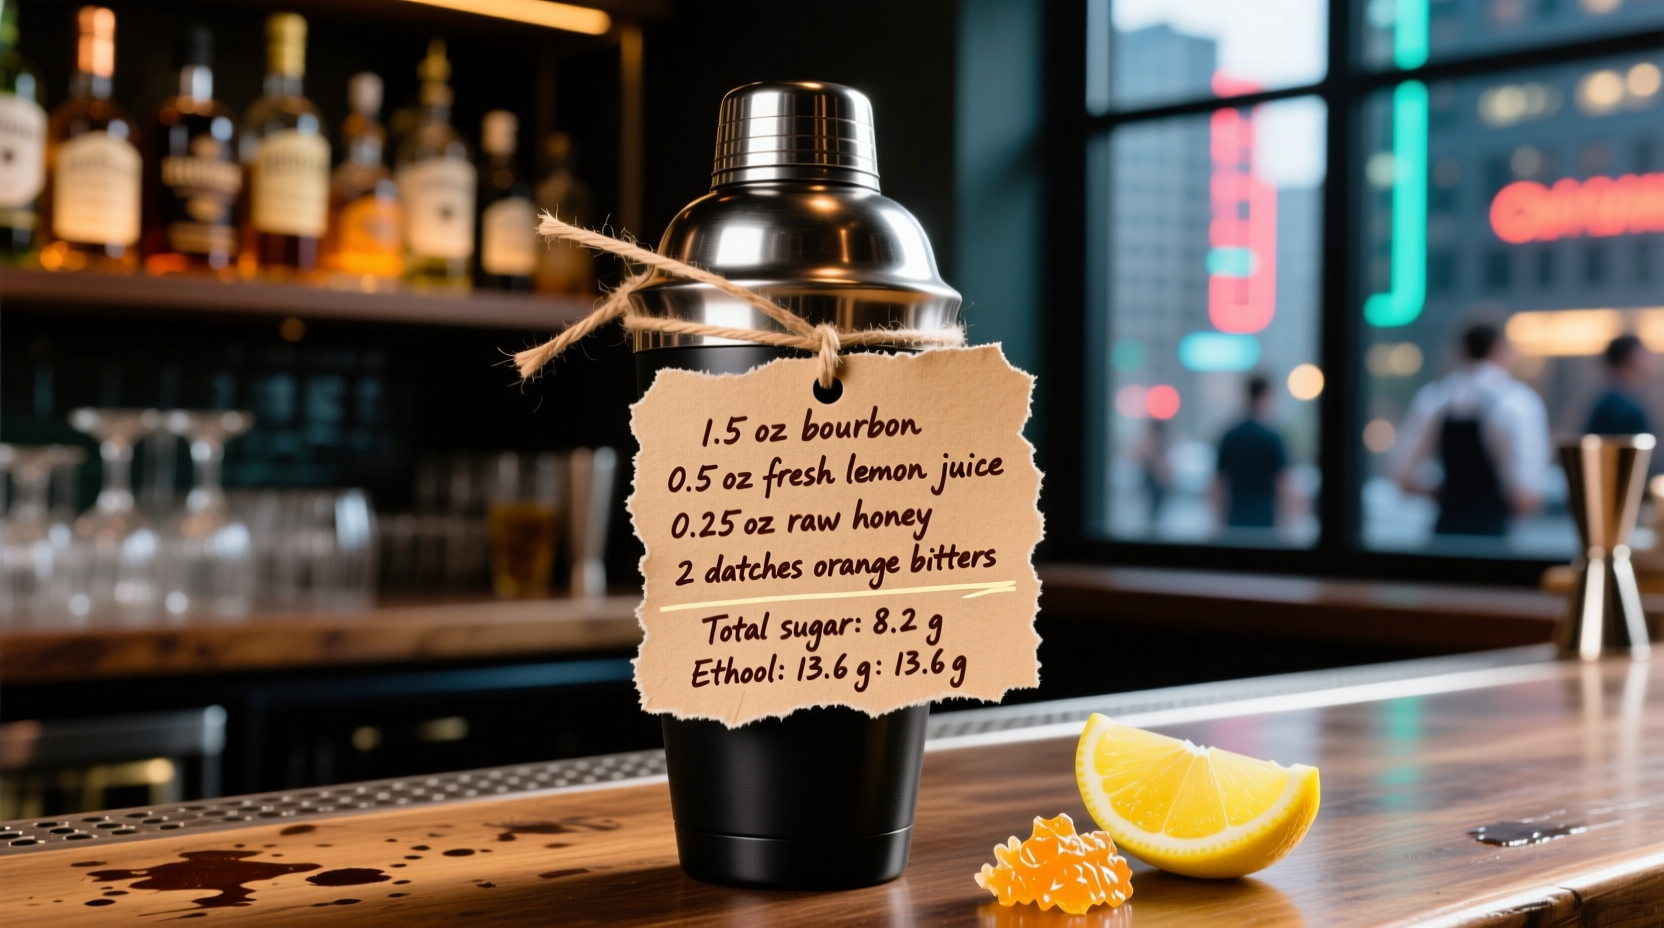 1.5 oz bourbon
0.5 oz fresh lemon juice
0.25 oz raw honey
2 datches orange bitters
Total sugar: 8.2 g
Ethool: 13.6 g: 13.6 g